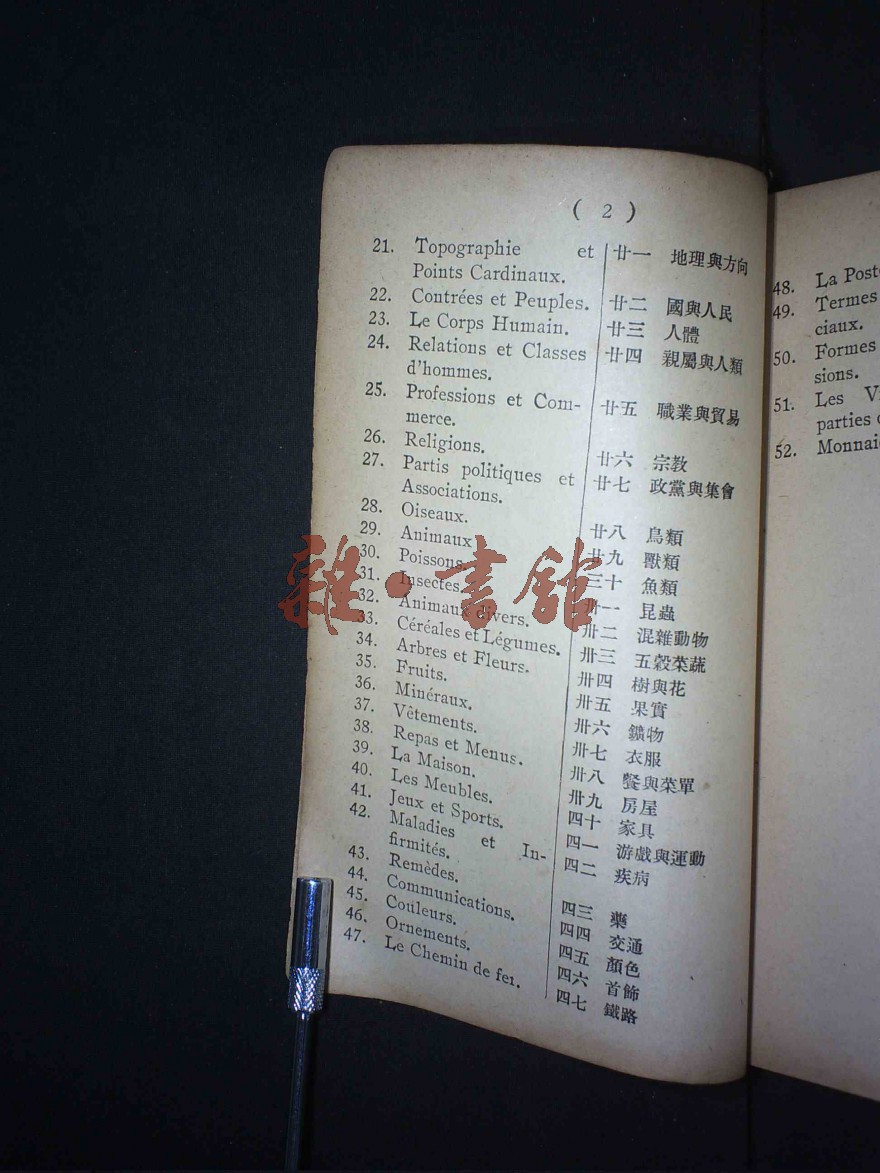 ( 2 )
21. Topographie et
Points Cardinaux.
22. Contrées et Peuples.
23. Le Corps Humain.
24. Relations et Classes
d'hommes.
25. Professions et Com-
merce.
26. Religions.
27. Partis politiques et
Associations.
28. Oiseaux.
29. Animaux
30. Poissons
31. Insectes.
32. Animaux divers.
33. Céréales et Légumes.
34. Arbres et Fleurs.
35. Fruits.
36. Minéraux.
37. Vêtements.
38. Repas et Menus.
39. La Maison.
40. Les Meubles.
41. Jeux et Sports.
42. Maladies et In-
firmités.
43. Remèdes.
44. Communications.
45. Couleurs.
46. Ornements.
47. Le Chemin de fer.
廿一 地理與方向
廿二 國與人民
廿三 人體
廿四 親屬與人類
廿五 職業與貿易
廿六 宗教
廿七 政黨與集會
廿八 鳥類
廿九 獸類
三十 魚類
卅一 昆蟲
卅二 混雜動物
卅三 五穀菜蔬
卅四 樹與花
卅五 果實
卅六 鑛物
卅七 衣服
卅八 餐與菜單
卅九 房屋
四十 家具
四一 游戲與運動
四二 疾病
四三 藥
四四 交通
四五 顏色
四六 首飾
四七 鐵路
48. La Post
49. Termes
ciaux.
50. Formes
sions.
51. Les
parties
52. Monnai
雜·書館